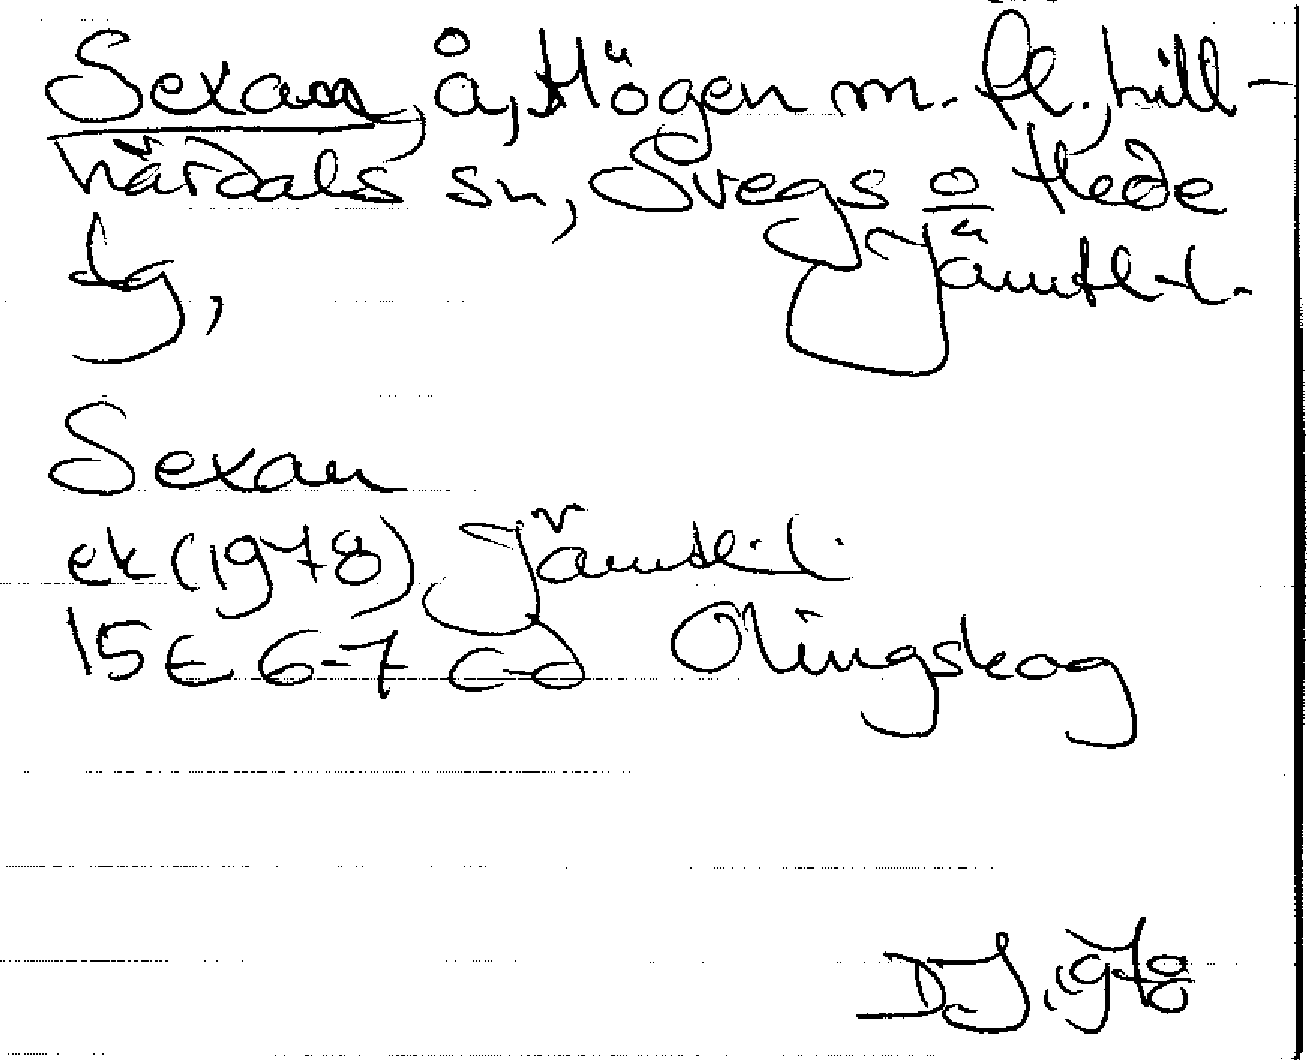 Sexan, å, Högen m. fl., Lill-
härdals sn, Svegs o Hede
tg, Jämtl. l.
Sexan
ek (1978) Jämtl. l.
15 E 6-7 c-d Olingskog
DJ 1978